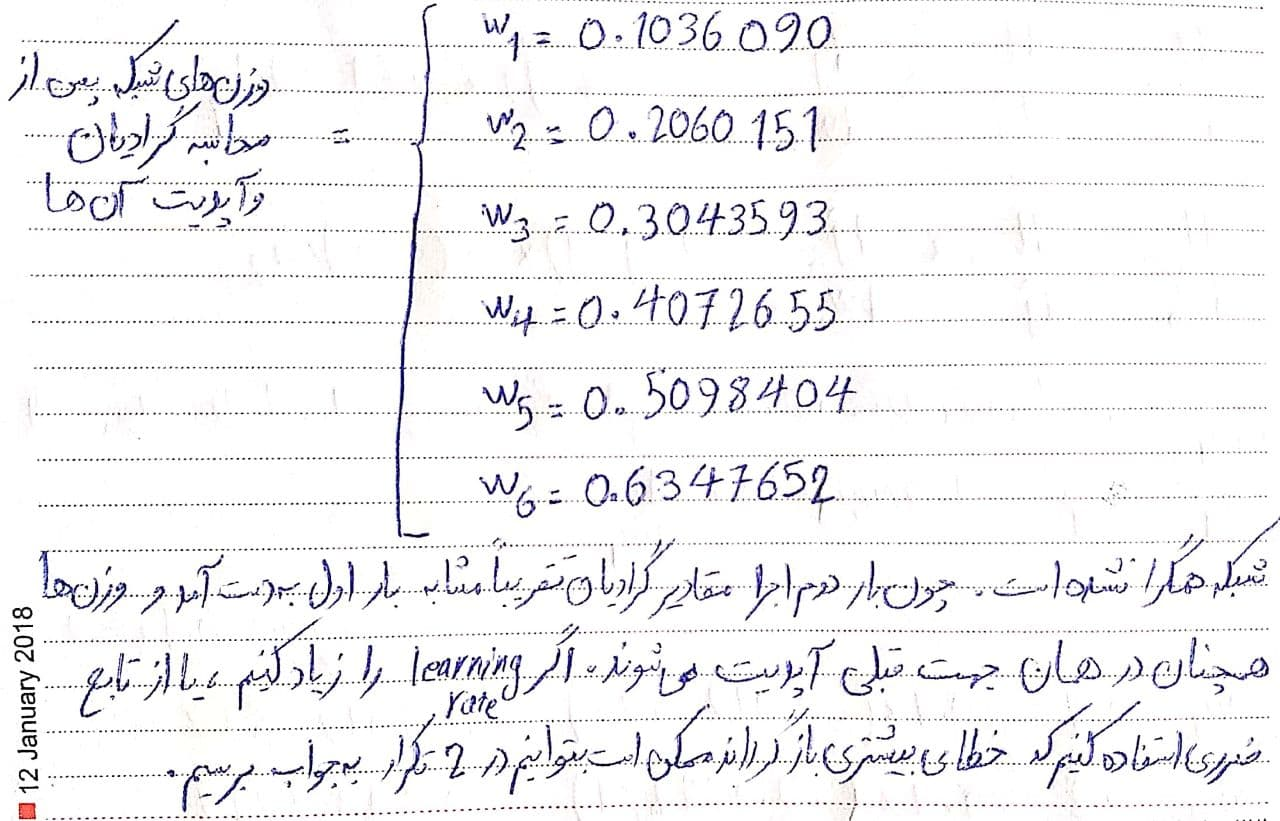 وزن‌های شبکه پس از
محاسبه گرادیان
و آپدیت آن‌ها
=
w1 = 0.1036090
w2 = 0.2060151
w3 = 0.3043593
w4 = 0.4072655
w5 = 0.5098404
w6 = 0.6347652
شبکه همگرا نشده است. چون بار دوم اجرا مقادیر گرادیان تقریباً مشابه بار اول به دست آمد و وزن‌ها
همچنان در همان جهت قبلی آپدیت می‌شوند. اگر learning rate را زیاد کنیم، یا از تابع
ضرری استفاده کنیم که خطای بیشتری بازگرداند ممکن است بتوانیم در 2 تکرار به جواب برسیم.
12 January 2018